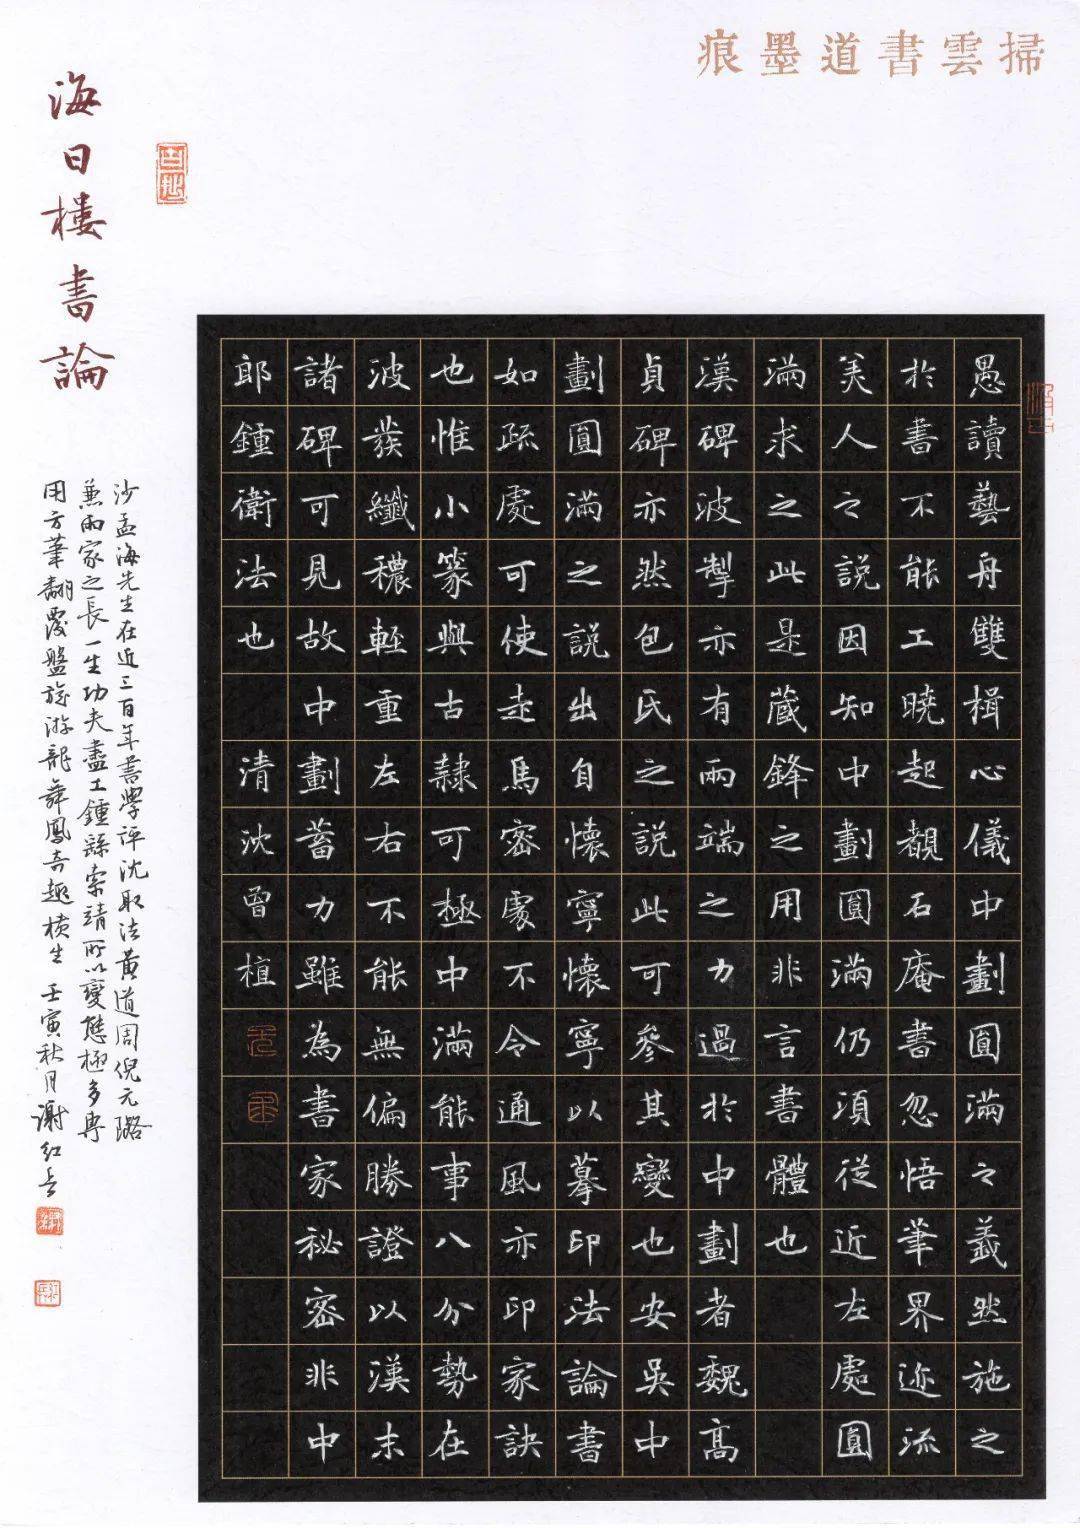 掃雲書道墨痕
愚讀藝舟雙楫心儀中劃圓滿之義然施之
於書不能工曉起覩石庵書忽悟筆界迹流
美人之說因知中劃圓滿仍須從近左處圓
滿求之此是蔵鋒之用非言書體也
漢碑波掣亦有兩端之力過於中劃者魏高
貞碑亦然包氏之說此可參其變也安吳中
劃圓滿之說出自懷寧懷寧以摹印法論書
如疏處可使走馬密處不令通風亦印家訣
也惟小篆與古隸可極中滿能事八分勢在
波發纖穠輕重左右不能無偏勝證以漢末
諸碑可見故中劃蓄力雖為書家秘密非中
郎鍾衛法也 清沈曾植
海日樓書論
沙孟海先生在近三百年書學評沈取法黃道周倪元璐
兼兩家之長一生功夫盡工鍾繇索靖所以變態極多專
用方筆翻覆盤旋游龍舞鳳奇趣橫生 壬寅秋月謝紅兵